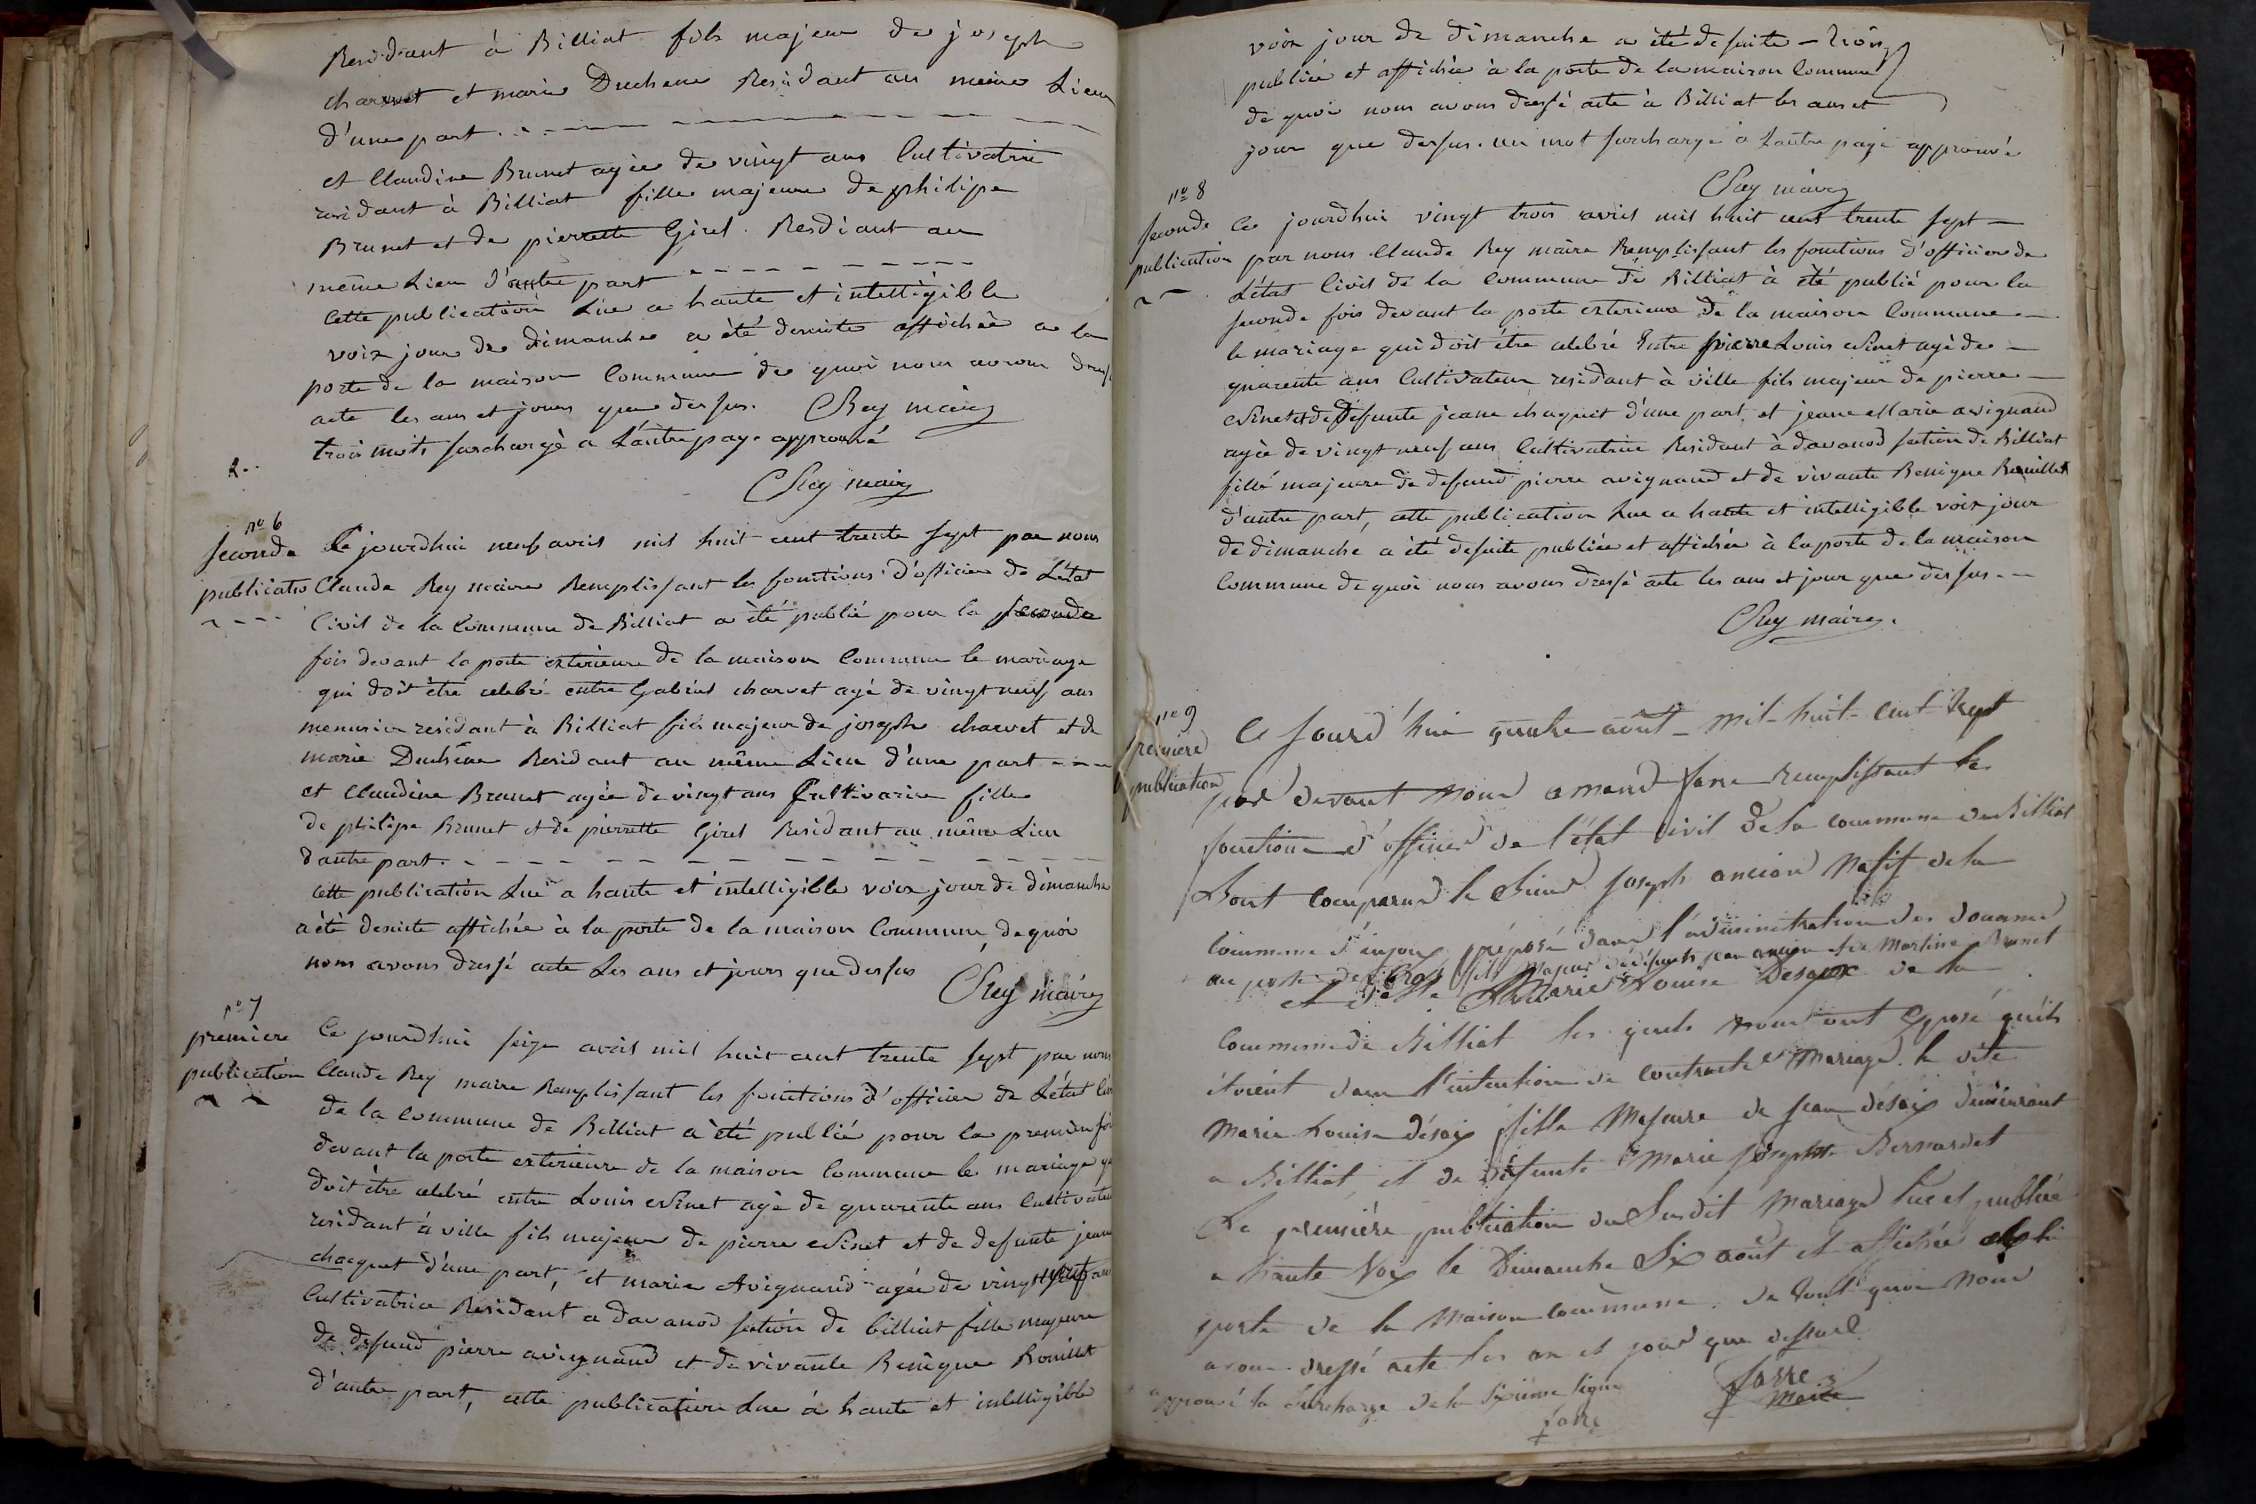 Residant à Billiat fils majeur de joseph
charvet et marie Duchene Residant au meme Lieu
d'une part
et Claudine Brunet agée de vingt ans Cultivatrice
residant à Billiat fille majeure de philipe
Brunet et de pierrette Girel. Resdiant au
même Lieu d'autre part
Cette publication Lue a haute et intelligible
voix jour de dimanche a été densuite affichée a la
porte de la maison Commune de quoi nous avons dressé
acte les ans et jours que dessus. CRey maire
trois mots surchargé a L'autre page approuvé
CRey maire
n.o 6
seconde
publicatio
Ce jourdhui neuf avril mil huit cent trente sept par nous
Claude Rey maire Remplissant les fonctions d'officier de L'état
Civil de la Commune de Billiat a été publié pour la seconde
fois devant la porte exterieure de la maison Commune le mariage
qui doit être celebré entre Gabriel charvet agé de vingt neuf ans
menusier residant à Billiat fils majeur de joseph charvet et de
marie Duchêne Residant au même Lieu d'une part
et Claudine Brunet agée de vingt ans Cultivarice fille
de philipe Brunet et de pierrette Girel Residant au même Lieu
d'autre part.
cette publication Lue a haute et intelligible voix jour de dimanche
a été densuite affichée à la porte de la maison Commune, de quoi
nous avons dressé acte Les ans et jours que dessus
CRey maire
n.o 7
premiere
publication
Ce jourdhui seize avril mil huit cent trente sept par nous
Claude Rey maire Remplissant les fonctions d'officier de L'état Civil
de la Commune de Billiat a été publié pour la premiere fois
devant la porte exterieure de la maison Commune le mariage qui
doit être celebré entre Louis evinet agé de quarente ans Cultivateur
residant à ville fils majeur de pierre evinet et de defunte jeanne
chaequet d'une part, et marie Avignand agée de vingt neuf ans
Cultivatrice Residant a davanod section de billiat fille majeure
de defund pierre avignand et de vivante Benigne Rouillet
d'autre part, cette publication Lue à haute et intelligible
voix jour de dimanche a été desuite
publiée et affichée à la porte de la maison Commune
de quoi nous avons dressé acte à Billiat les ans et
jour que dessus. un mot surchargé a L'autre page approuvé
CRey maire
n.o 8
seconde
publication
Ce jourdhui vingt trois avril mil huit cent trente sept
par nous Claude Rey maire Remplissant les fonctions d'officier de
L'état Civil de la Commune de Billiat à été publié pour la
seconde fois devant la porte exterieure de la maison Commune
le mariage qui doit être celebré Entre pierre Louis evinet agé de
quarente ans Cultivateur residant à ville fils majeur de pierre
evinet et de Defunte jeane chaquet d'une part, et jeane Marie avignand
agée de vingt neuf ans Cultivatrice Residant à davanod section de Billiat
fille majeure de defund pierre avignand et de vivante Benigne Rouillet
d'autre part, cette publication Lue a haute et intelligible voix jour
de dimanche a été desuite publiée et affichée à la porte de la maison
Commune de quoi nous avons dressé acte les ans et jour que dessus
CRey maire.
n.o 9
premiere
publication
Ce jourd'hui août mil-huit-cent trente sept
par devant nous amand favre remplissant les
fonctions d'officier de l'état civil de la commune de Billiat
Sont comparus le Sieur joseph ancian Natif de la
commune d'injoux préposé dans l'administration des douanes
au poste de fils Majeur de défunts jean ancian et de Martine Brunet
et d.elle Marie Louise Desaix de la
Commune de Billiat les quels nous ont Exposé qu'ils
étoient dans l'intention de contracter Mariage. la dite
Marie Louise désaix fille Majeure de jean désaix demeurant
a Billiat, et de défunte Marie josephte Bernardet
La premiére publication du Susdit Mariage lue et publiée
a haute Voix le Dimanche Six août et affichée à la
porte de la Maison commune. de tout quoi Nous
avons dressé acte les an et jour que dessus
approuvé la Surcharge de la Sixième ligne
favre
favre
Maire